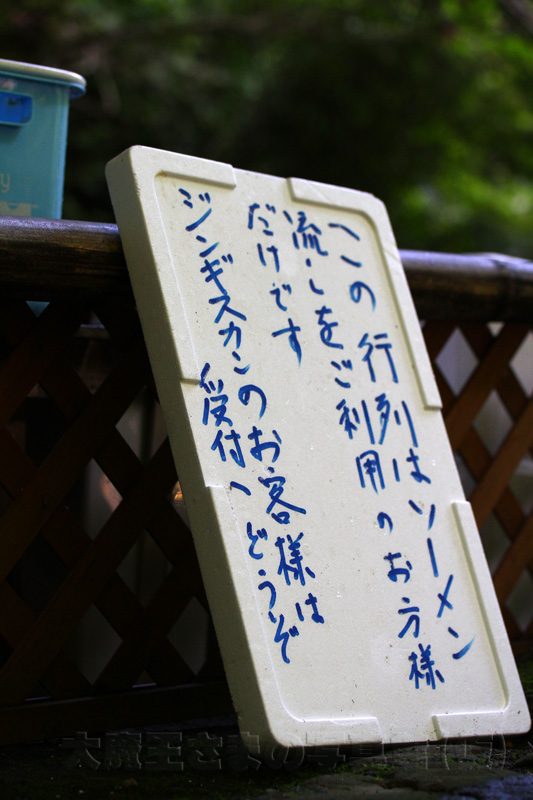 この行列はソーメン
流しをご利用のお方様
だけです
ジンギスカンのお客様は
受付へどうぞ
大魔王さまの写真